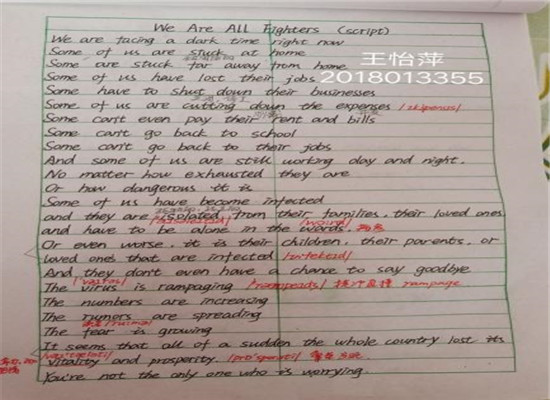 We Are All Fighters (script)
We are facing a dark time right now
Some of us are stuck at home
Some are stuck far away from home
王怡萍
Some of us have lost their jobs
2018013355
Some have to shut down their businesses
Some of us are cutting down the expenses
Some can't even pay their rent and bills
Some can't go back to school
Some can't go back to their jobs
And some of us are still working day and night.
No matter how exhausted they are
Or how dangerous it is
Some of us have become infected
and they are isolated from their families, their loved ones
and have to be alone in the words.
Or even worse, it is their children, their parents, or
loved ones that are infected
And they don't even have a chance to say goodbye
The virus is rampaging rampage
The numbers are increasing
The rumors are spreading
The fear is growing
It seems that all of a sudden the whole country lost its
vitality and prosperity.
You're not the only one who is worrying.